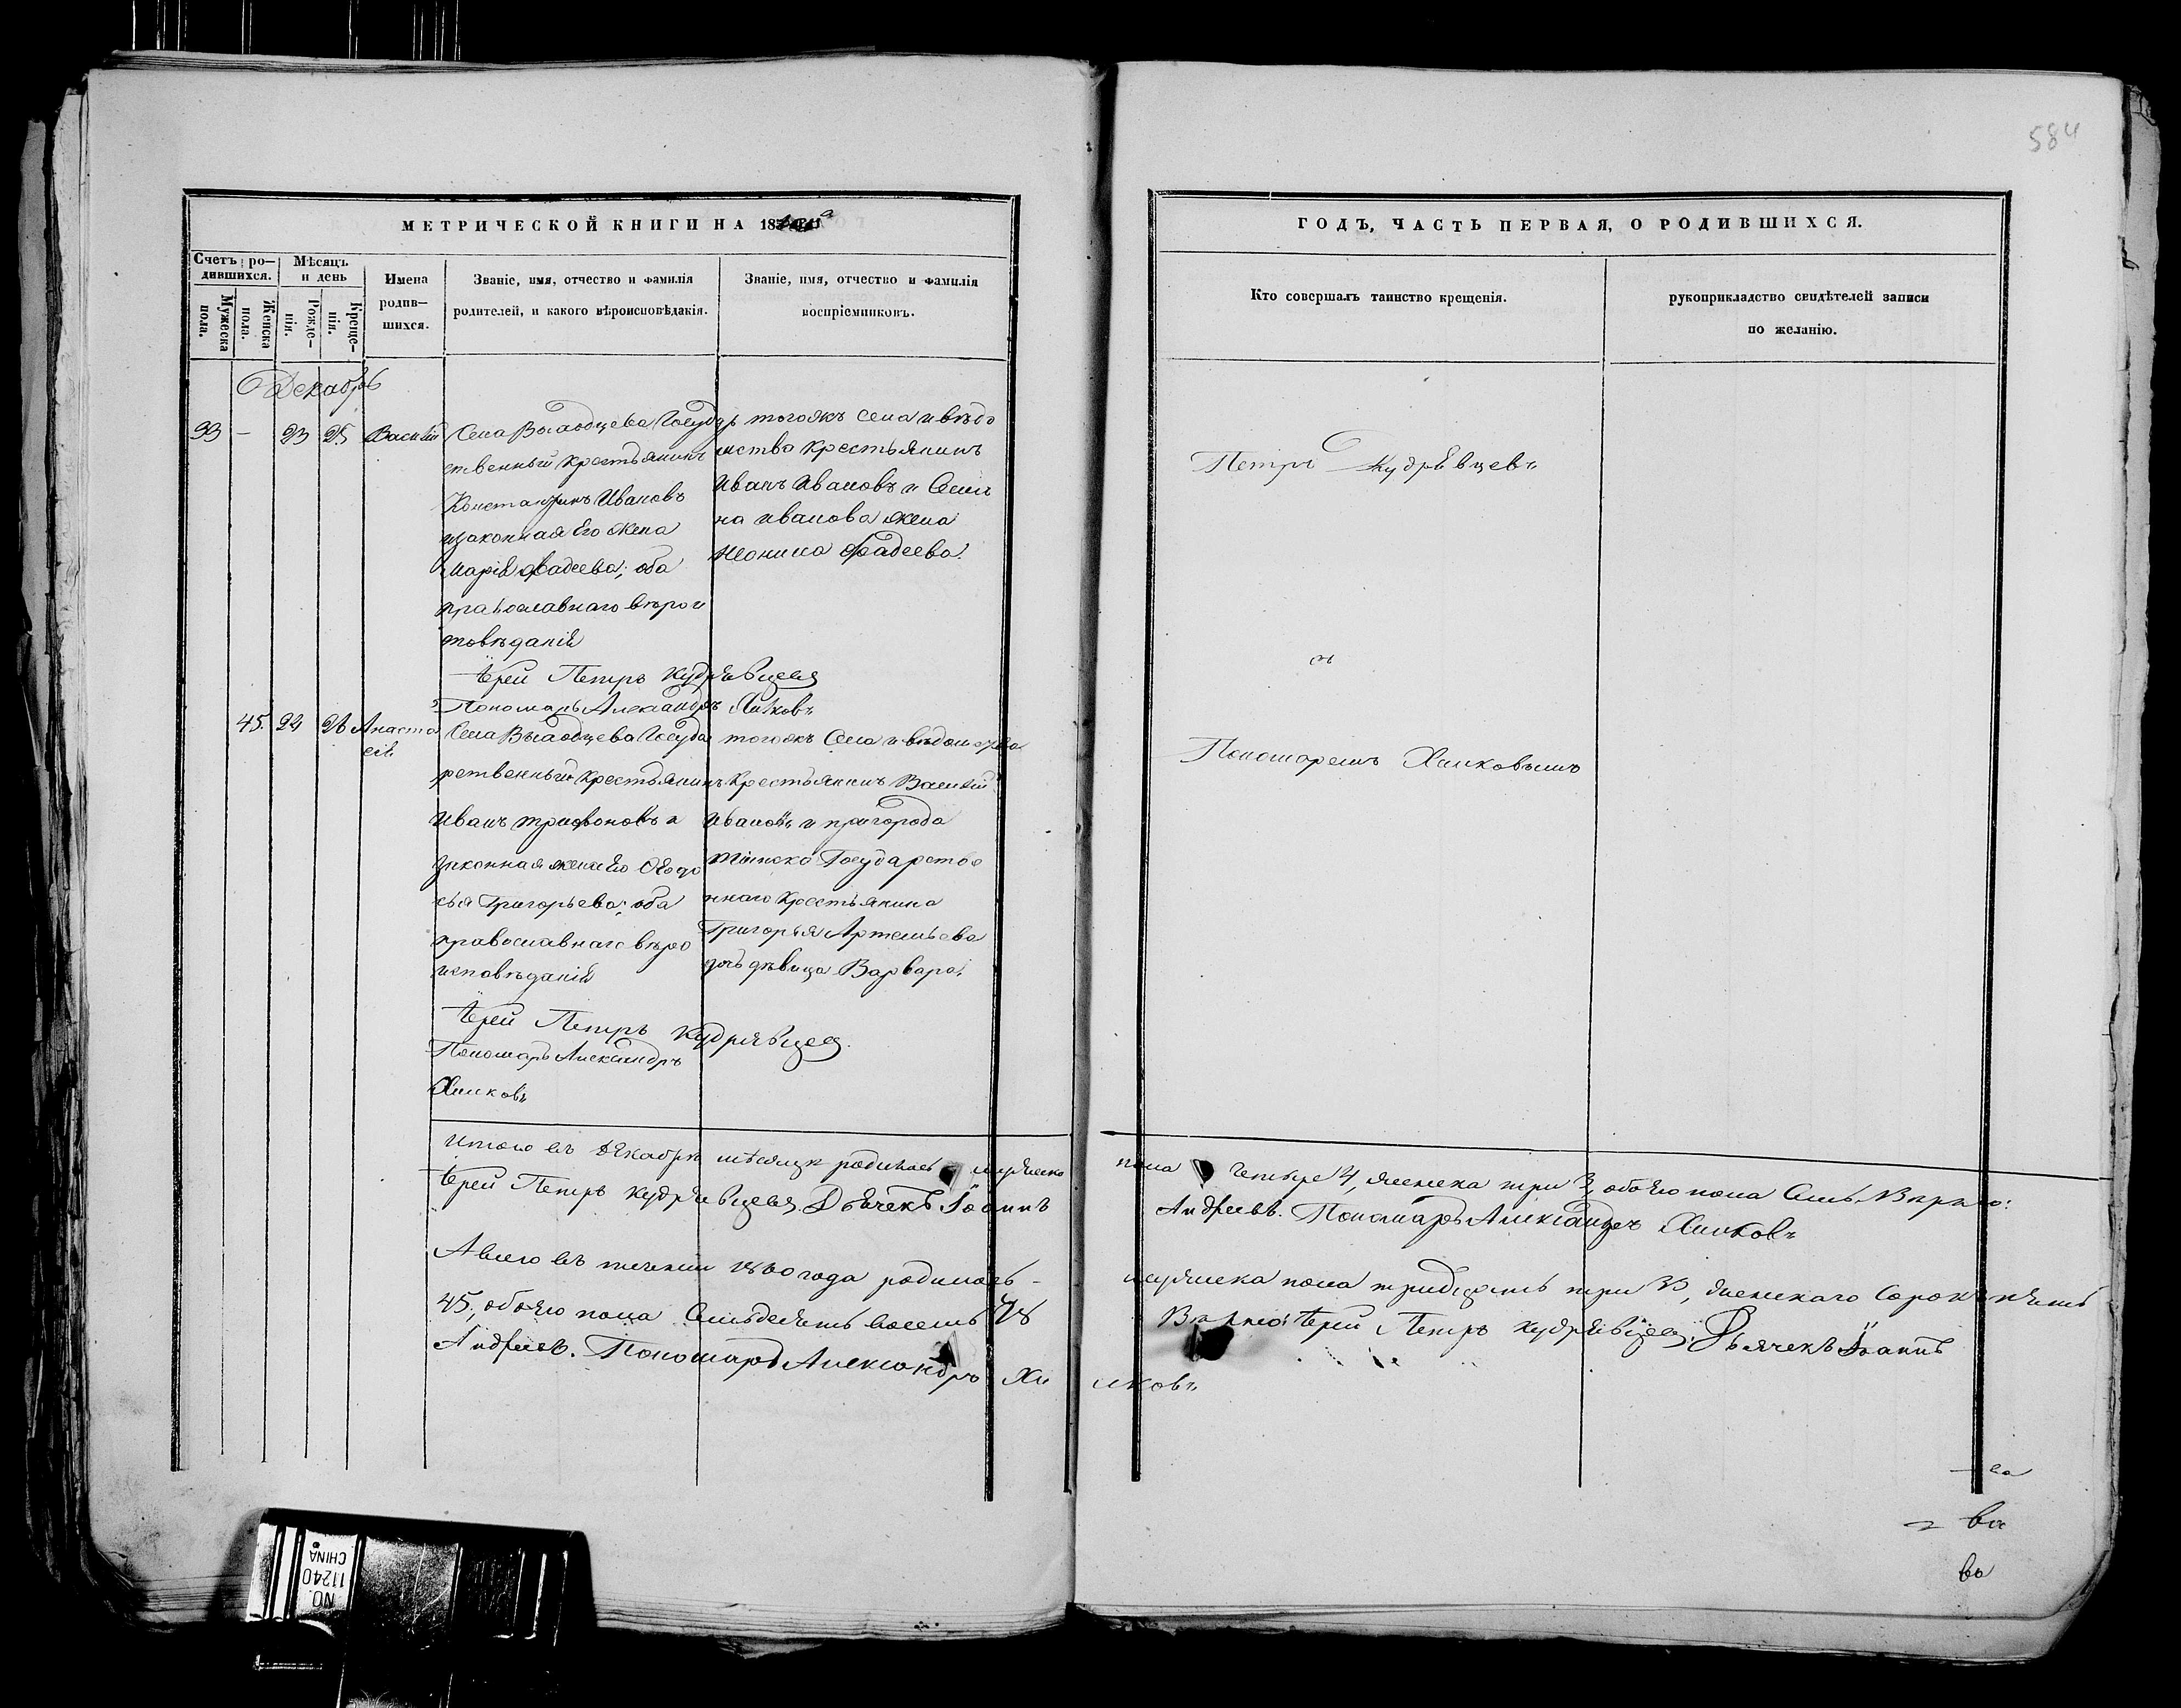 584
МЕТРИЧЕСКОЙ КНИГИ НА 18
ГОДЪ, ЧАСТЬ ПЕРВАЯ, О РОДИВШИХСЯ.
Счетъ ро-
дившихся.
Мужеска
пола.
Женска
пола.
Мѣсяцъ
и день
Рожде-
нія.
Креще-
нія.
Имена
родив-
шихся.
Званіе, имя, отчество и фамилія
родителей, и какого вѣроисповѣданія.
Званіе, имя, отчество и фамилія
воспріемниковъ.
Кто совершалъ таинство крещенія.
рукоприкладство свидѣтелей записи
по желанію.
Декабрь
33 - 23 25 Василій
Села Госуда
ственный крестьянинъ
Константинъ Ивановъ
изаконная Его жена
Марія Фадеева; оба
православнаго вѣрои
сповѣданія
тогожъ села и вѣдо
мства крестьянинъ
Иванъ Ивановъ и Семе
на иванова жена
Неонила Фадеева.
Петръ Кудрѣвцевъ
Іерей Петръ Кудрявцевъ
Пономарь Александръ Хилковъ
45. 24 26 Анаста
сія
Села Госуда
рственный крестьянинъ
Иванъ Трифоновъ и
законная жена Его Евдо
кья Григорьева; оба
православнаго вѣро
исповѣданія
тогожъ Села и вѣдомства
Крестьянинъ Василій
Ивановъ и пригорода
Государстве
ннаго крестьянина
Григорья Артемьева
дочь дѣвица Варвара.
Пономаремъ Хилковымъ
Іерей Петръ Кудрявцевъ.
Пономарь Александръ
Хилковъ
Итого въ декабрѣ мѣсяцѣ родилось мужеска пола четыре 4, женска три 3, обоего пола Семь. Вѣрно:
Іерей Петръ Кудрявцевъ. Дьячекъ Іоаннъ Андреевъ. Пономарь Александръ Хилковъ
А всего въ теченіи 1860 года родилось мужеска пола тридцать три 33, женскаго Сорокъ пять
45, обоего пола Семьдесятъ восемь 78 Вѣрно: Іерей Петръ Кудрявцевъ. Дьячекъ Іоаннъ
Андреевъ. Пономарь Александръ Хилковъ
ва
во
NO.
11240
CHINA